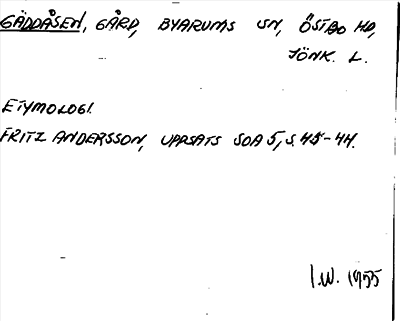 GÄDDÅSEN, GÅRD, BYARUMS SN, ÖSTBO HD,
JÖNK. L.
ETYMOLOGI.
FRITZ ANDERSSON, UPPSATS SOA 5, S. 45-44.
I.W. 1955